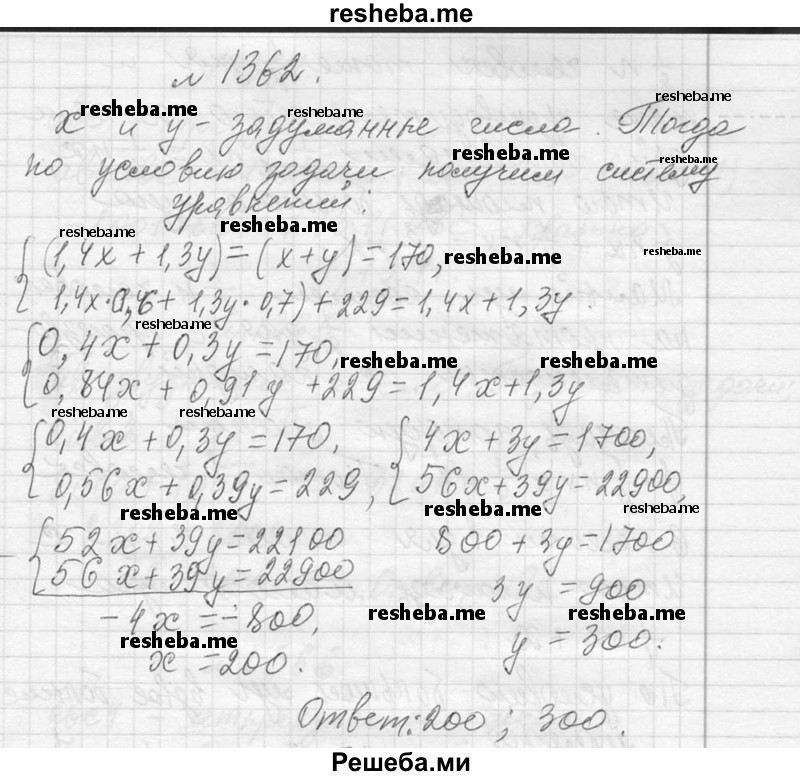 resheba.me
№ 1362.
resheba.me resheba.me resheba.me
x и y - задуманные числа. Тогда
resheba.me resheba.me
по условию задачи получим систему
уравнений:
resheba.me resheba.me
(1,4x + 1,3y) = (x + y) = 170,
resheba.me resheba.me
1,4x · 0,6 + 1,3y · 0,7) + 229 = 1,4x + 1,3y
resheba.me
0,4x + 0,3y = 170,
resheba.me resheba.me
0,84x + 0,91y + 229 = 1,4x + 1,3y
resheba.me resheba.me
0,4x + 0,3y = 170, 4x + 3y = 1700,
0,56x + 0,39y = 229, 56x + 39y = 22900,
resheba.me resheba.me resheba.me
52x + 39y = 22100 800 + 3y = 1700
56x + 39y = 22900 3y = 900
- 4x = - 800, resheba.me resheba.me
resheba.me y = 300.
x = 200.
Ответ: 200 ; 300.
Решеба.ми